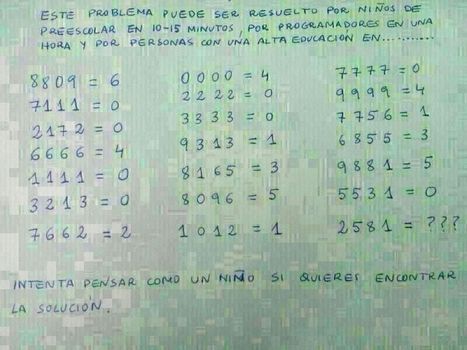 ESTE PROBLEMA PUEDE SER RESUELTO POR NIÑOS DE
PREESCOLAR EN 10-15 MINUTOS, POR PROGRAMADORES EN UNA
HORA Y POR PERSONAS CON UNA ALTA EDUCACIÓN EN...........
8809 = 6
7111 = 0
2172 = 0
6666 = 4
1111 = 0
3213 = 0
7662 = 2
0000 = 4
2222 = 0
3333 = 0
9313 = 1
8165 = 3
8096 = 5
1012 = 1
7777 = 0
9999 = 4
7756 = 1
6855 = 3
9881 = 5
5531 = 0
2581 = ???
INTENTA PENSAR COMO UN NIÑO SI QUIERES ENCONTRAR
LA SOLUCIÓN.